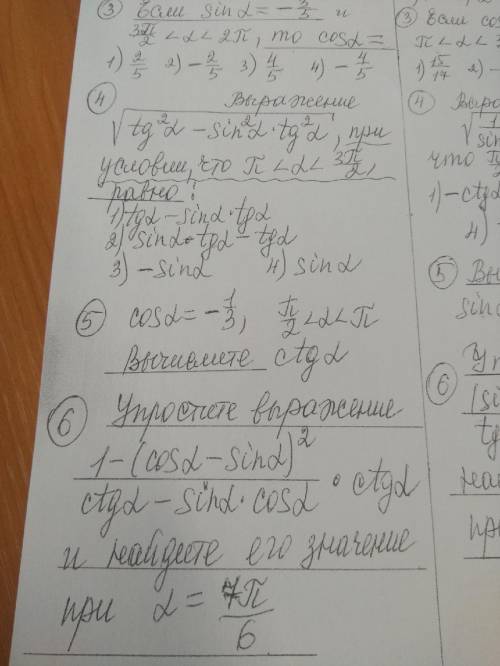 ③ Если sinα = -3/5 и
3π/2 < α < 2π, то cosα =
1) 2/5 2) -2/5 3) 4/5 4) -4/5
④ Выражение
√(tg²α - sin²α · tg²α), при
условии, что π < α < 3π/2,
равно:
1) tgα - sinα · tgα
2) sinα · tgα - tgα
3) -sinα 4) sinα
⑤ cosα = -1/3, π/2 < α < π
Вычислите ctgα
⑥ Упростите выражение
(1 - (cosα - sinα)²)/(ctgα - sinα · cosα) · ctgα
и найдите его значение
при α = 7π/6
③ Если
π < α <
1) 15/17 2) -
④
1/sin
что π
1) -ctgα
4) -
⑤
sin
⑥
(si
tg
най
при